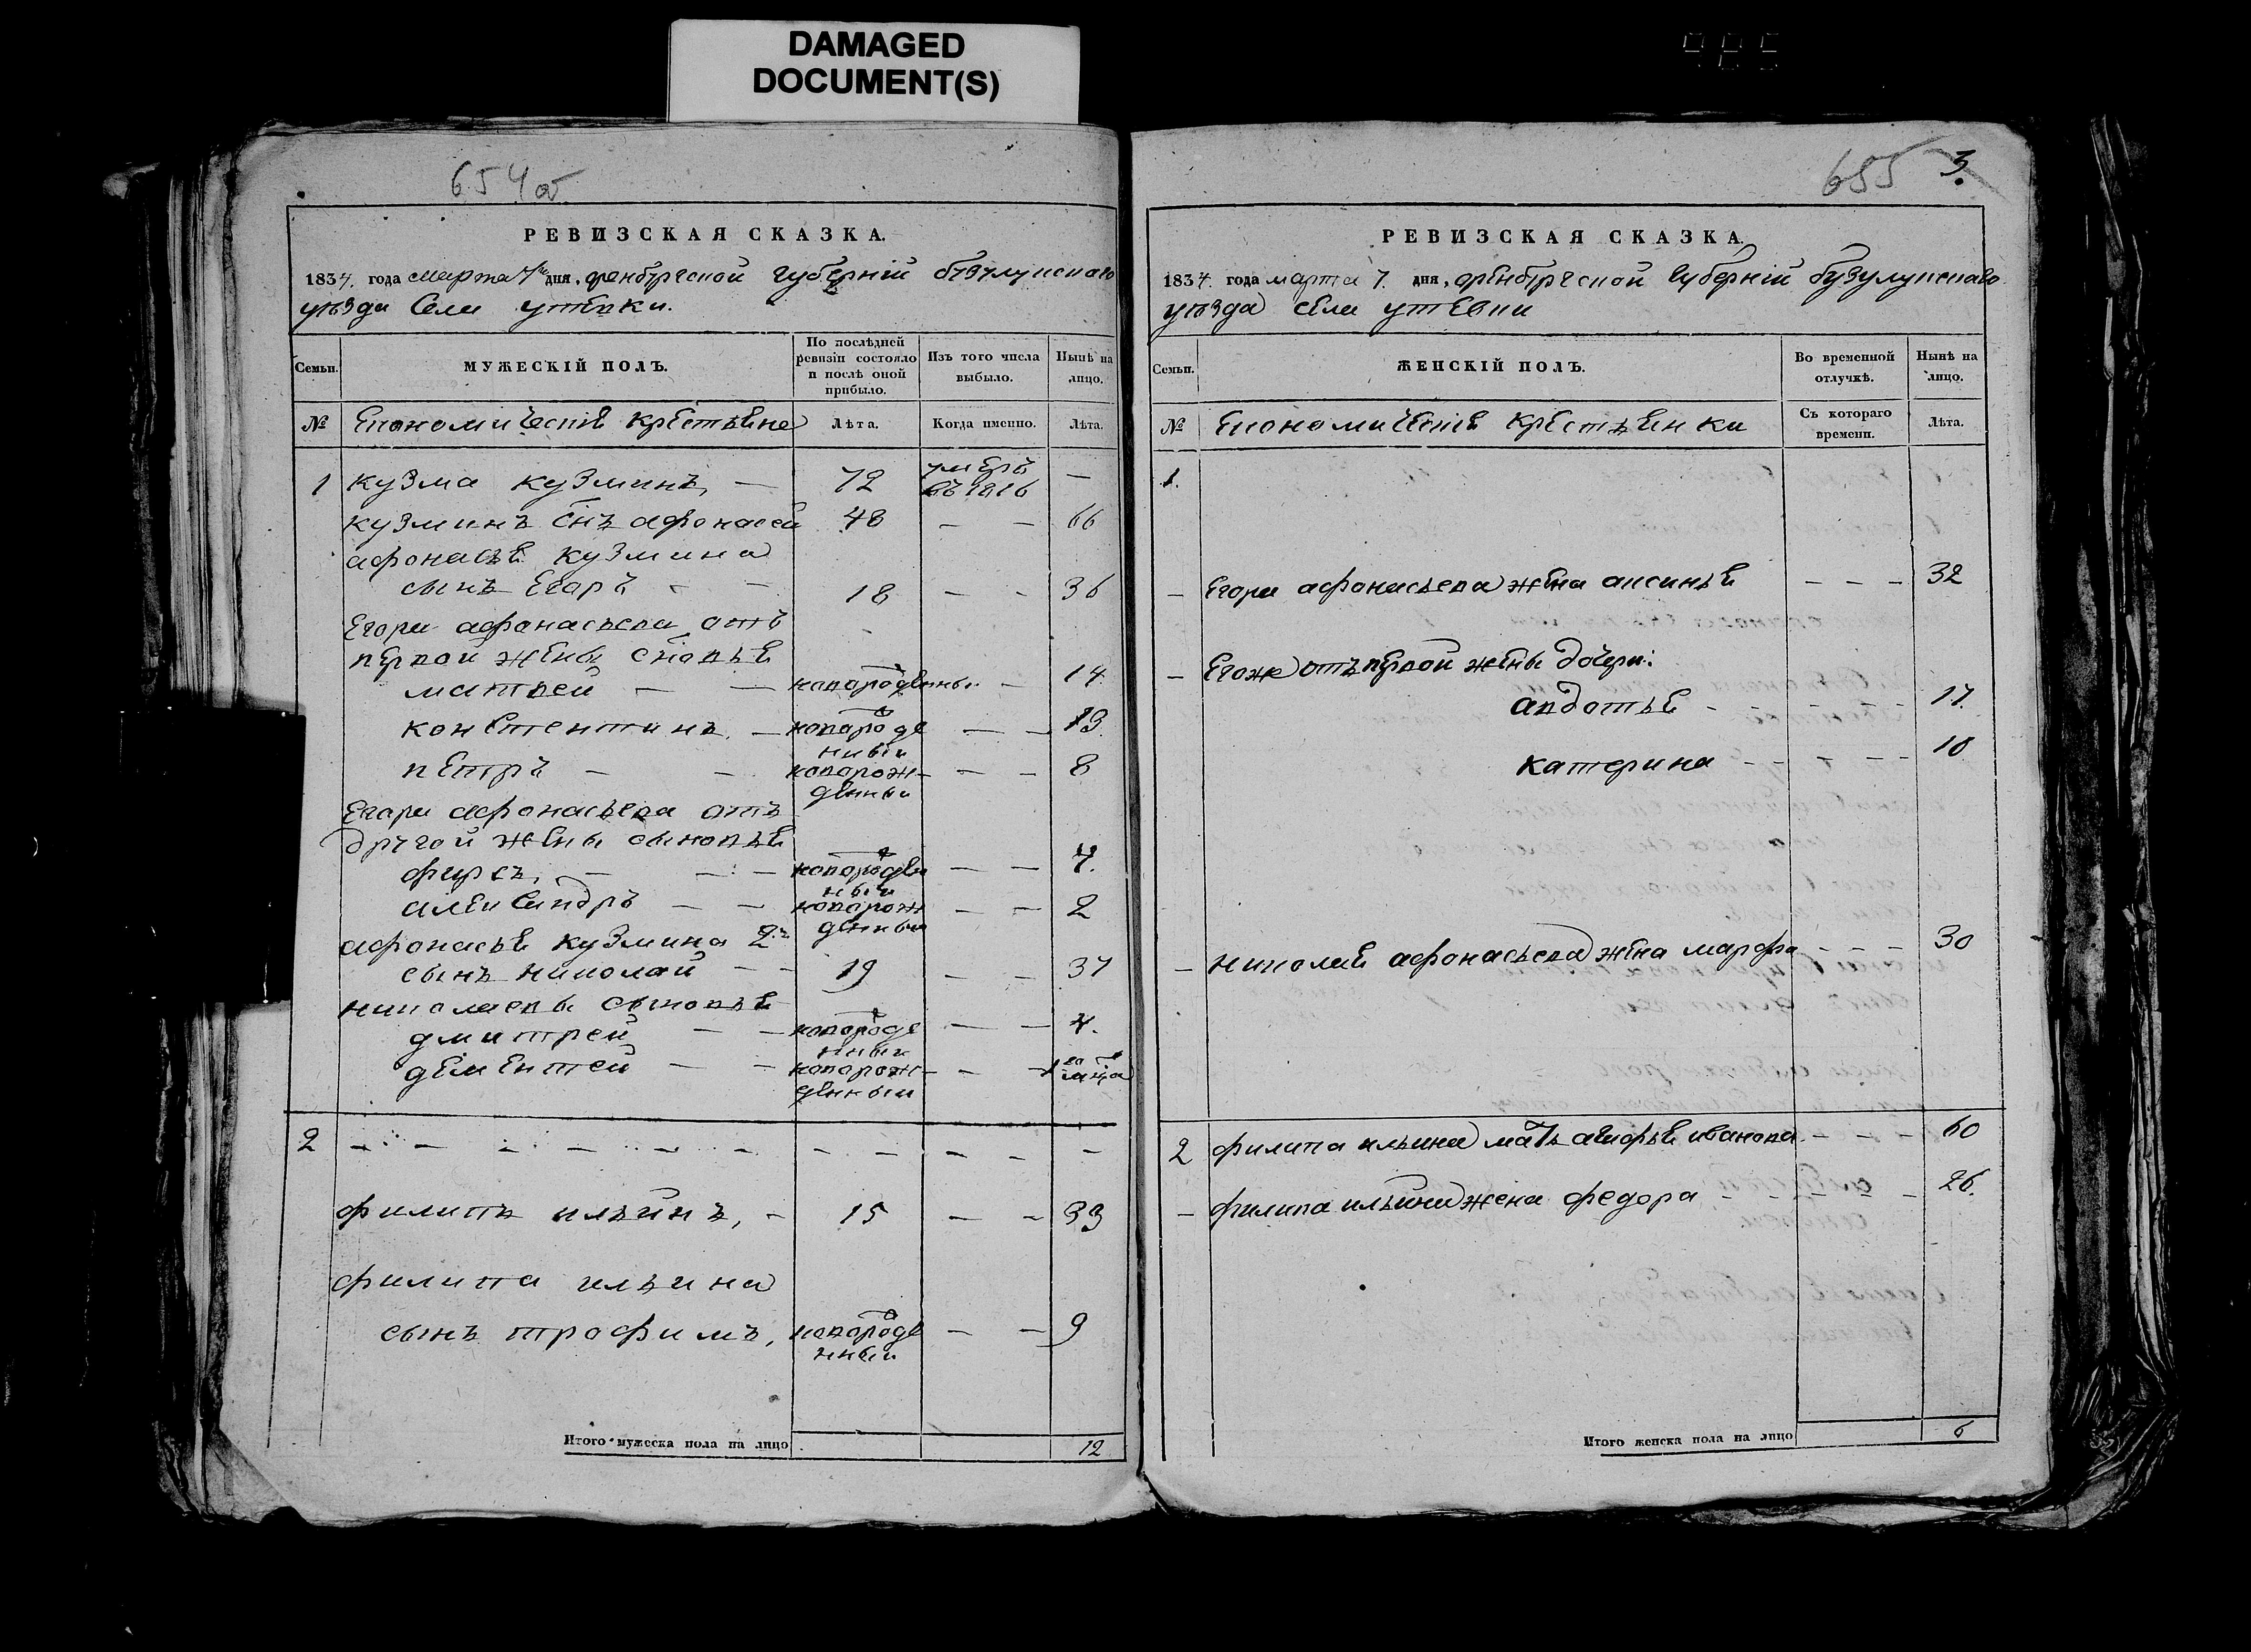 DAMAGED
DOCUMENT(S)
654об
РЕВИЗСКАЯ СКАЗКА.
1834. года марта 7 дня, оренбургской губерніи бузулукскаго
уѣзда села утевки.
Семьи.
МУЖЕСКІЙ ПОЛЪ.
По послѣдней ревизіи состояло и послѣ оной прибыло.
Изъ того числа выбыло.
Нынѣ на лицо.
№ Економическіе крестьяне Лѣта. Когда именно. Лѣта.
1 кузма кузминъ, — 72 умеръ въ 1816 —
кузминъ снъ афонасей 48 — — 66
афонасья кузмина
сынъ Егоръ - — 18 — - 36
Егора афонасьева отъ
первой жены сновья
матвей — — новорожденны — 14
константинъ. — новорожденный — — 13
петръ — - новорожденный — — 8
Егора афонасьева отъ
другой жены сыновья
фирсъ, — новорожденный — — 4.
александръ — — новорожденный — — 2
афонасья кузмина 2й
сынъ николай — - 19 — — 37
николаевы сыновья
дмитрей — — новорожденный — — 4.
дементей — — новорожденный — — 1го мца
2 — — — — — — — —
филипъ ильинъ, - 15 — - 33
филипа ильина
сынъ трофимъ, новорожденный — — 9
Итого мужеска пола на лицо 12
655 3.
РЕВИЗСКАЯ СКАЗКА.
1834. года марта 7. дня, оренбургской губерніи бузулукскаго
уѣзда села утевки
Семьи.
ЖЕНСКІЙ ПОЛЪ.
Во временной отлучкѣ.
Нынѣ на лицо.
№ Економическіе крестьянки Съ котораго времени. Лѣта.
1.
— Егора афонасьева жена аксинья — — — 32
— Егож отъ первой жены дочери:
авдотья - - - - - 17.
катерина - - - - - 10
— николая афонасьева жена марфа - - - 30
2 филипа ильина мать агафья иванова. - - - 60
— филипа ильина жена федора - - - - 26.
Итого женска пола на лицо 6